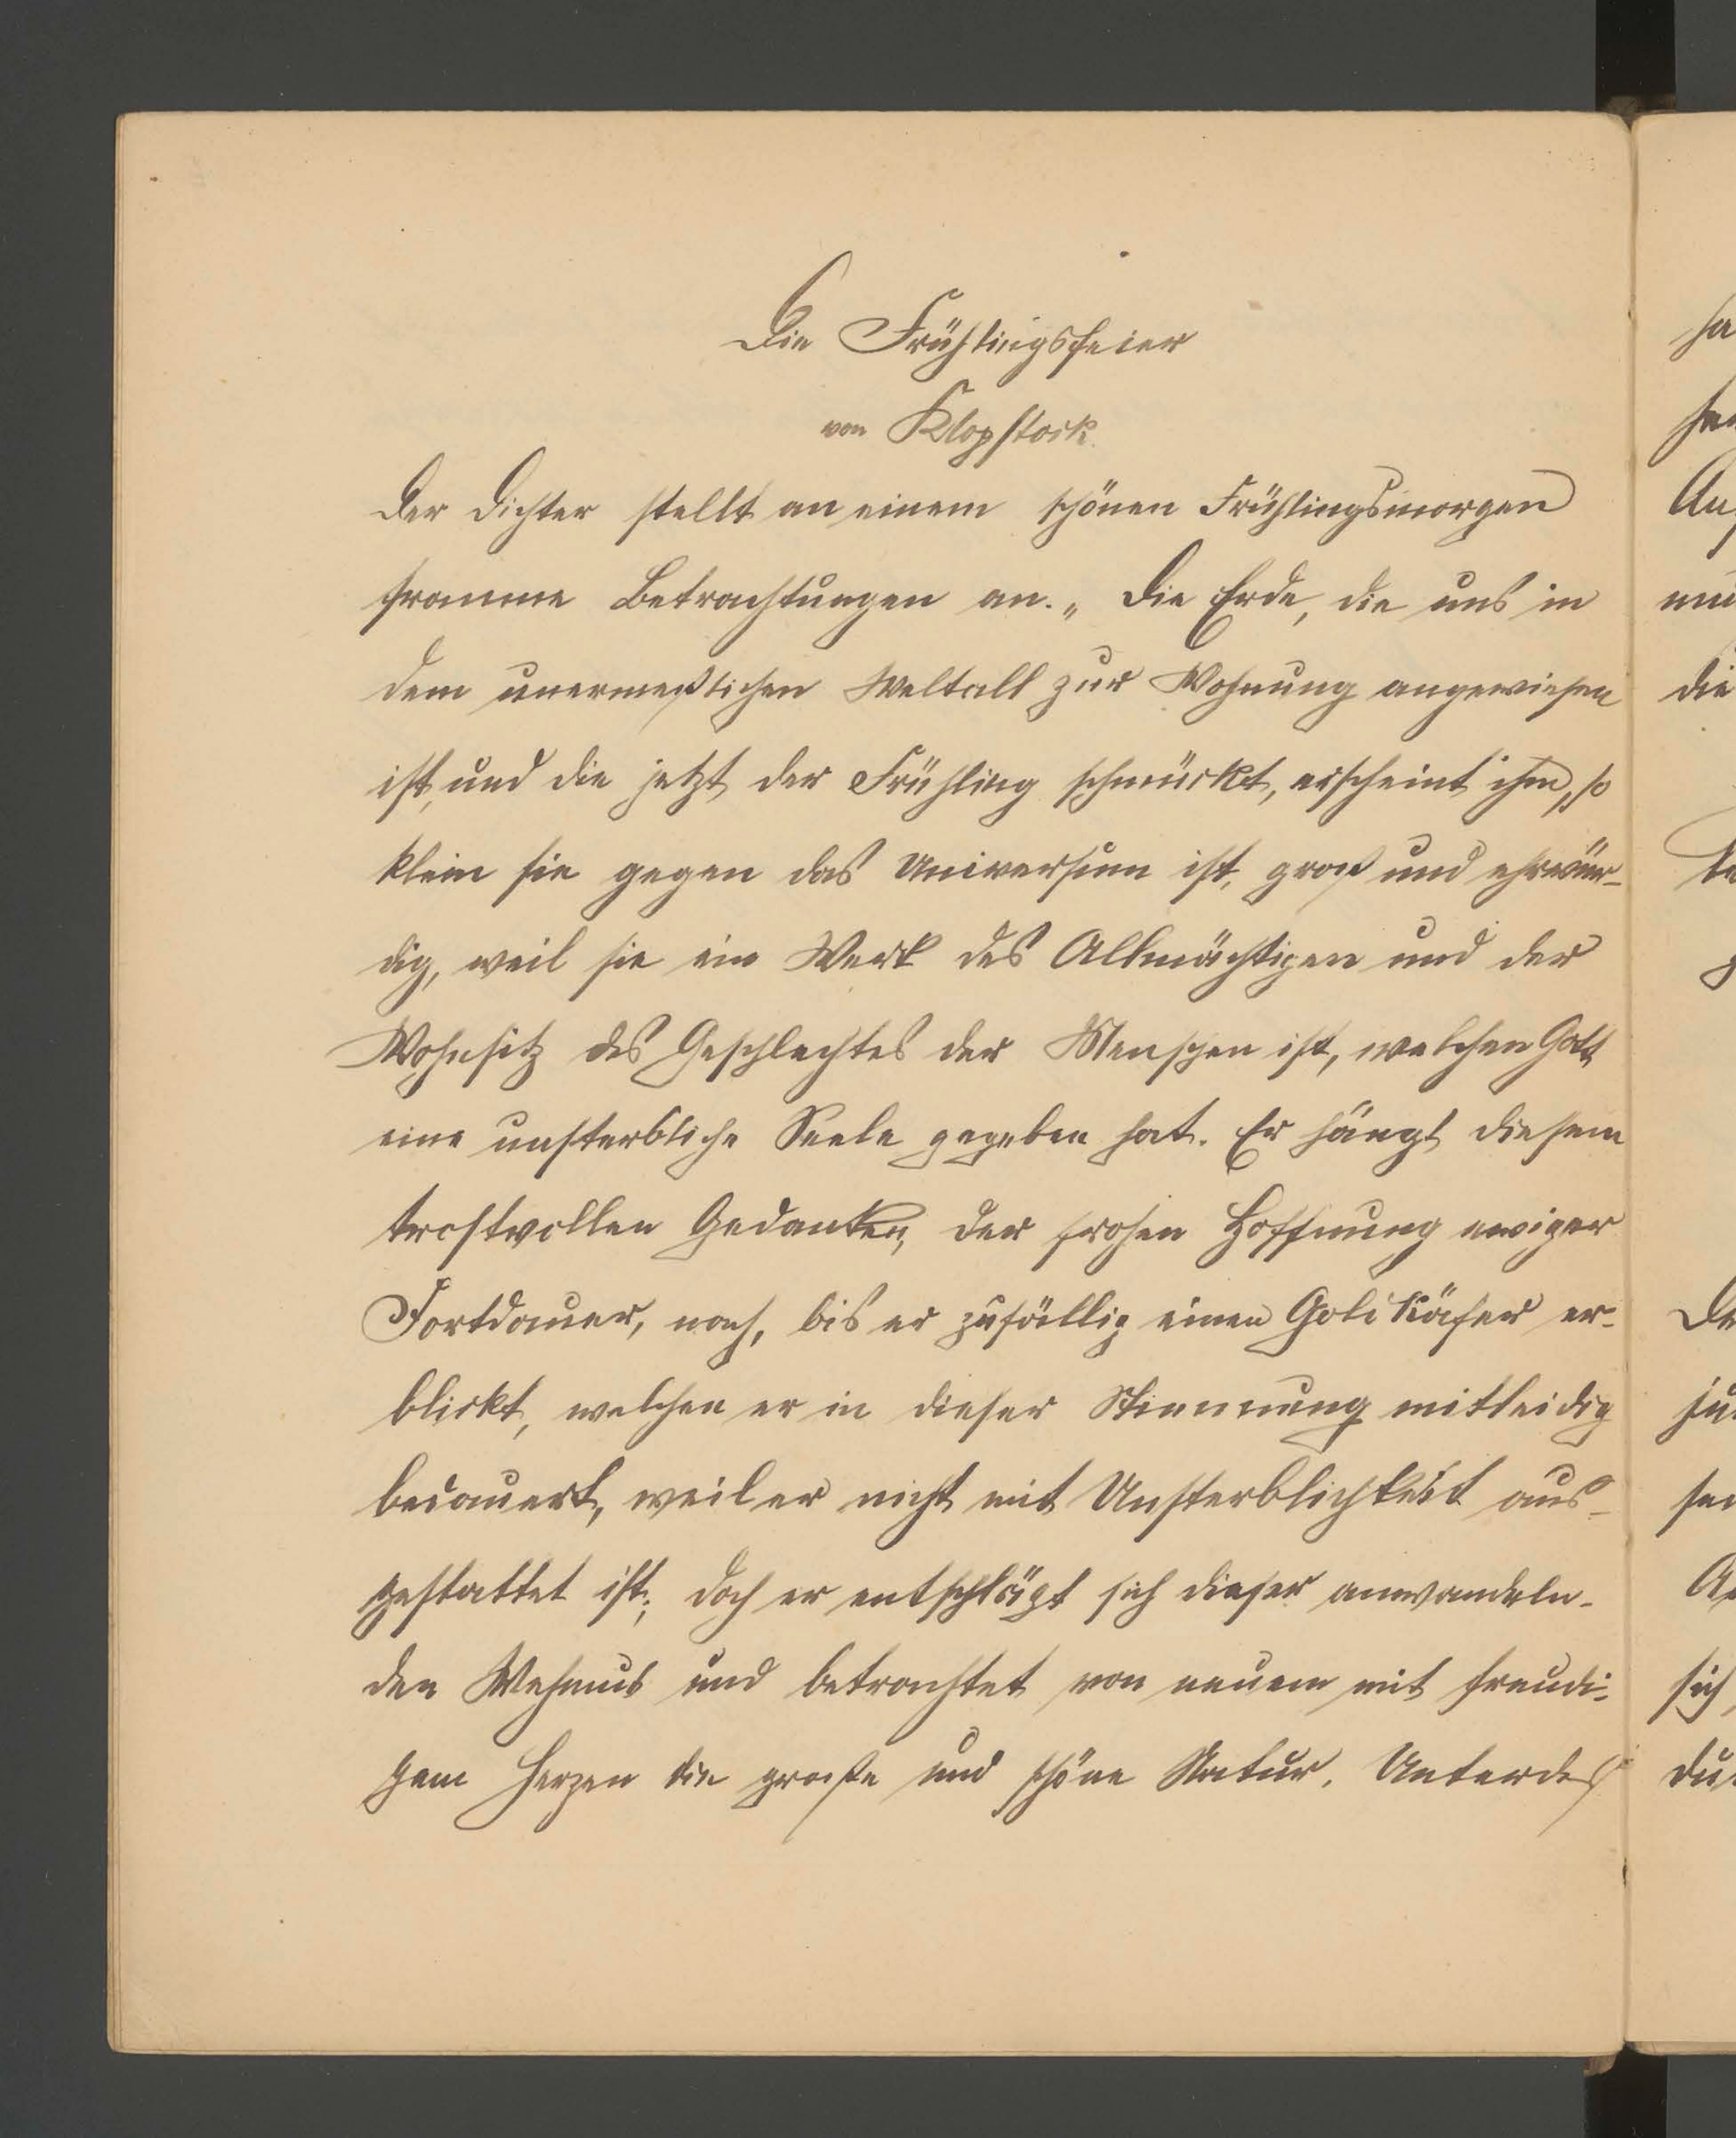 Die Frühlingsfeier
von Klopstock.
Der Dichter stellt an einem schönen Frühlingsmorgen
fromme Betrachtungen an. „Die Erde, die uns in
dem unermeßlichen Weltall zur Wohnung angewiesen
ist, und die jetzt der Frühling schmückt, erscheint ihm, so
klein sie gegen das Universum ist, groß und ehrwür-
dig, weil sie ein Werk des Allmächtigen und der
Wohnsitz des Geschlechtes der Menschen ist, welchen Gott
eine unsterbliche Seele gegeben hat. Er hängt diesem
trostvollen Gedanken, der frohen Hoffnung ewiger
Fortdauer, nach, bis er zufällig einen Goldkäfer er-
blickt, welchen er in dieser Stimmung mitleidig
bedauert, weil er nicht mit Unsterblichkeit aus-
gestattet ist; doch er entschlägt sich dieser anwandeln-
den Wehmut und betrachtet von neuem mit freudi-
gem Herzen die große und schöne Natur. Unterdeß